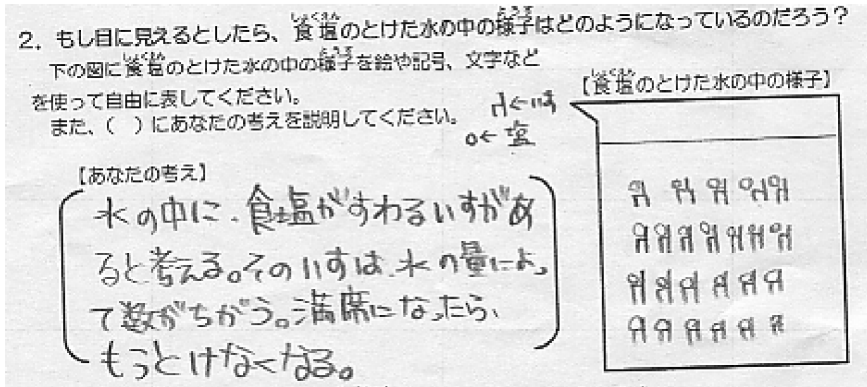 2. もし目に見えるとしたら、食塩のとけた水の中の様子はどのようになっているのだろう？
下の図に食塩のとけた水の中の様子を絵や記号、文字など
を使って自由に表してください。
また、（ ）にあなたの考えを説明してください。
【あなたの考え】
水の中に、食塩がすわるいすがあ
ると考える。そのいすは、水の量によっ
て数がちがう。満席になったら、
もうとけなくなる。
【食塩のとけた水の中の様子】
←いす
o←塩